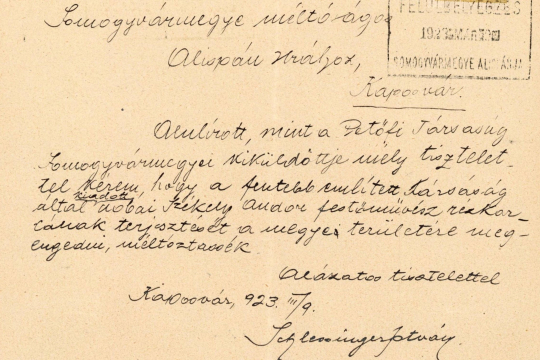 Somogyvármegye méltóságos
FELÜLBÉLYEGZÉS
SOMOGYVÁRMEGYE ALISPÁNJA
Alispán Urához,
Kaposvár.
Alulírott, mint a Petőfi Társaság
Somogyvármegyei kiküldöttje mély tisztelet-
tel kérem, hogy a fentebb említett Társaság
által kiadott Székely Andor festőművész rézkar-
cának terjesztését a megye területére meg-
engedni, méltóztassék.
Alázatos tisztelettel
Kaposvár, 923. III/9.
Schlessinger István